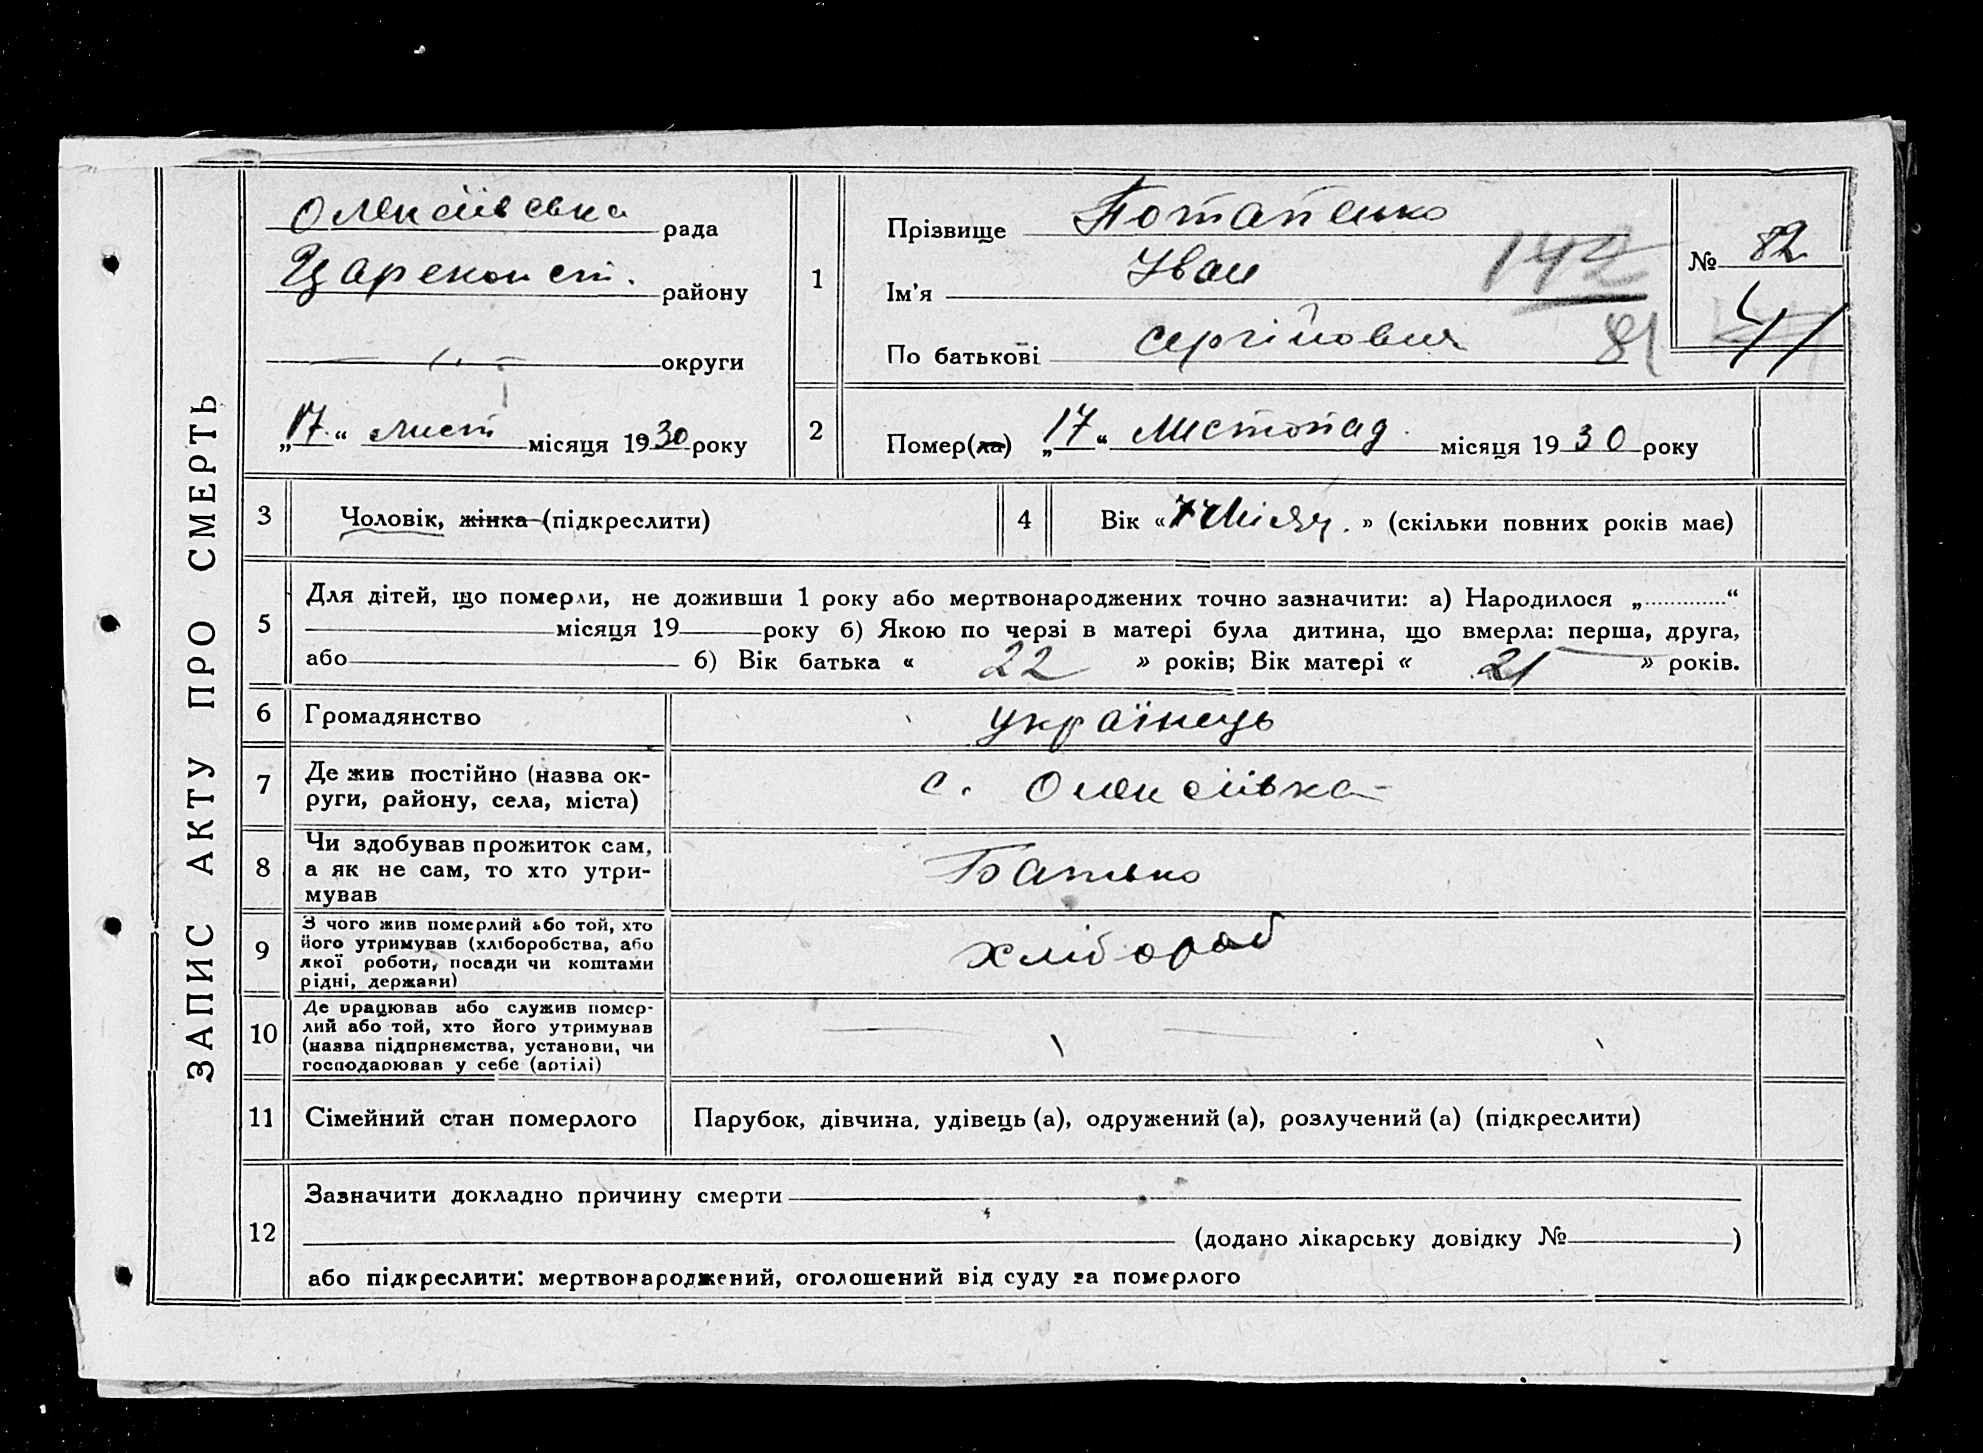 ЗАПИС АКТУ ПРО СМЕРТЬ
Олексіївська рада
Цареконст. району
округи
„17“ лист місяця 1930 року
1
Прізвище Потапенко
Ім'я Іван
По батькові Сергійович
142
81
№ 82
41
2
Помер(ла) „17“ листопад місяця 1930 року
3
Чоловік, жінка (підкреслити)
4
Вік « місяц. » (скільки повних років має)
5
Для дітей, що померли, не доживши 1 року або мертвонароджених точно зазначити: а) Народилося „ “
місяця 19 року б) Якою по черзі в матері була дитина, що вмерла: перша, друга,
або б) Вік батька « 22 » років; Вік матері « 21 » років.
6
Громадянство
українець
7
Де жив постійно (назва ок-
руги, району, села, міста)
с. Олексіївка
8
Чи здобував прожиток сам,
а як не сам, то хто утри-
мував
Батько
9
З чого жив померлий або той, хто
його утримував (хліборобства, або
якої роботи, посади чи коштами
рідні, держави)
хлібороб
10
Де працював або служив помер-
лий або той, хто його утримував
(назва підприємства, установи, чи
господарював у себе (артілі)
11
Сімейний стан померлого
Парубок, дівчина, удівець (а), одружений (а), розлучений (а) (підкреслити)
12
Зазначити докладно причину смерти
(додано лікарську довідку № )
або підкреслити: мертвонароджений, оголошений від суду за померлого